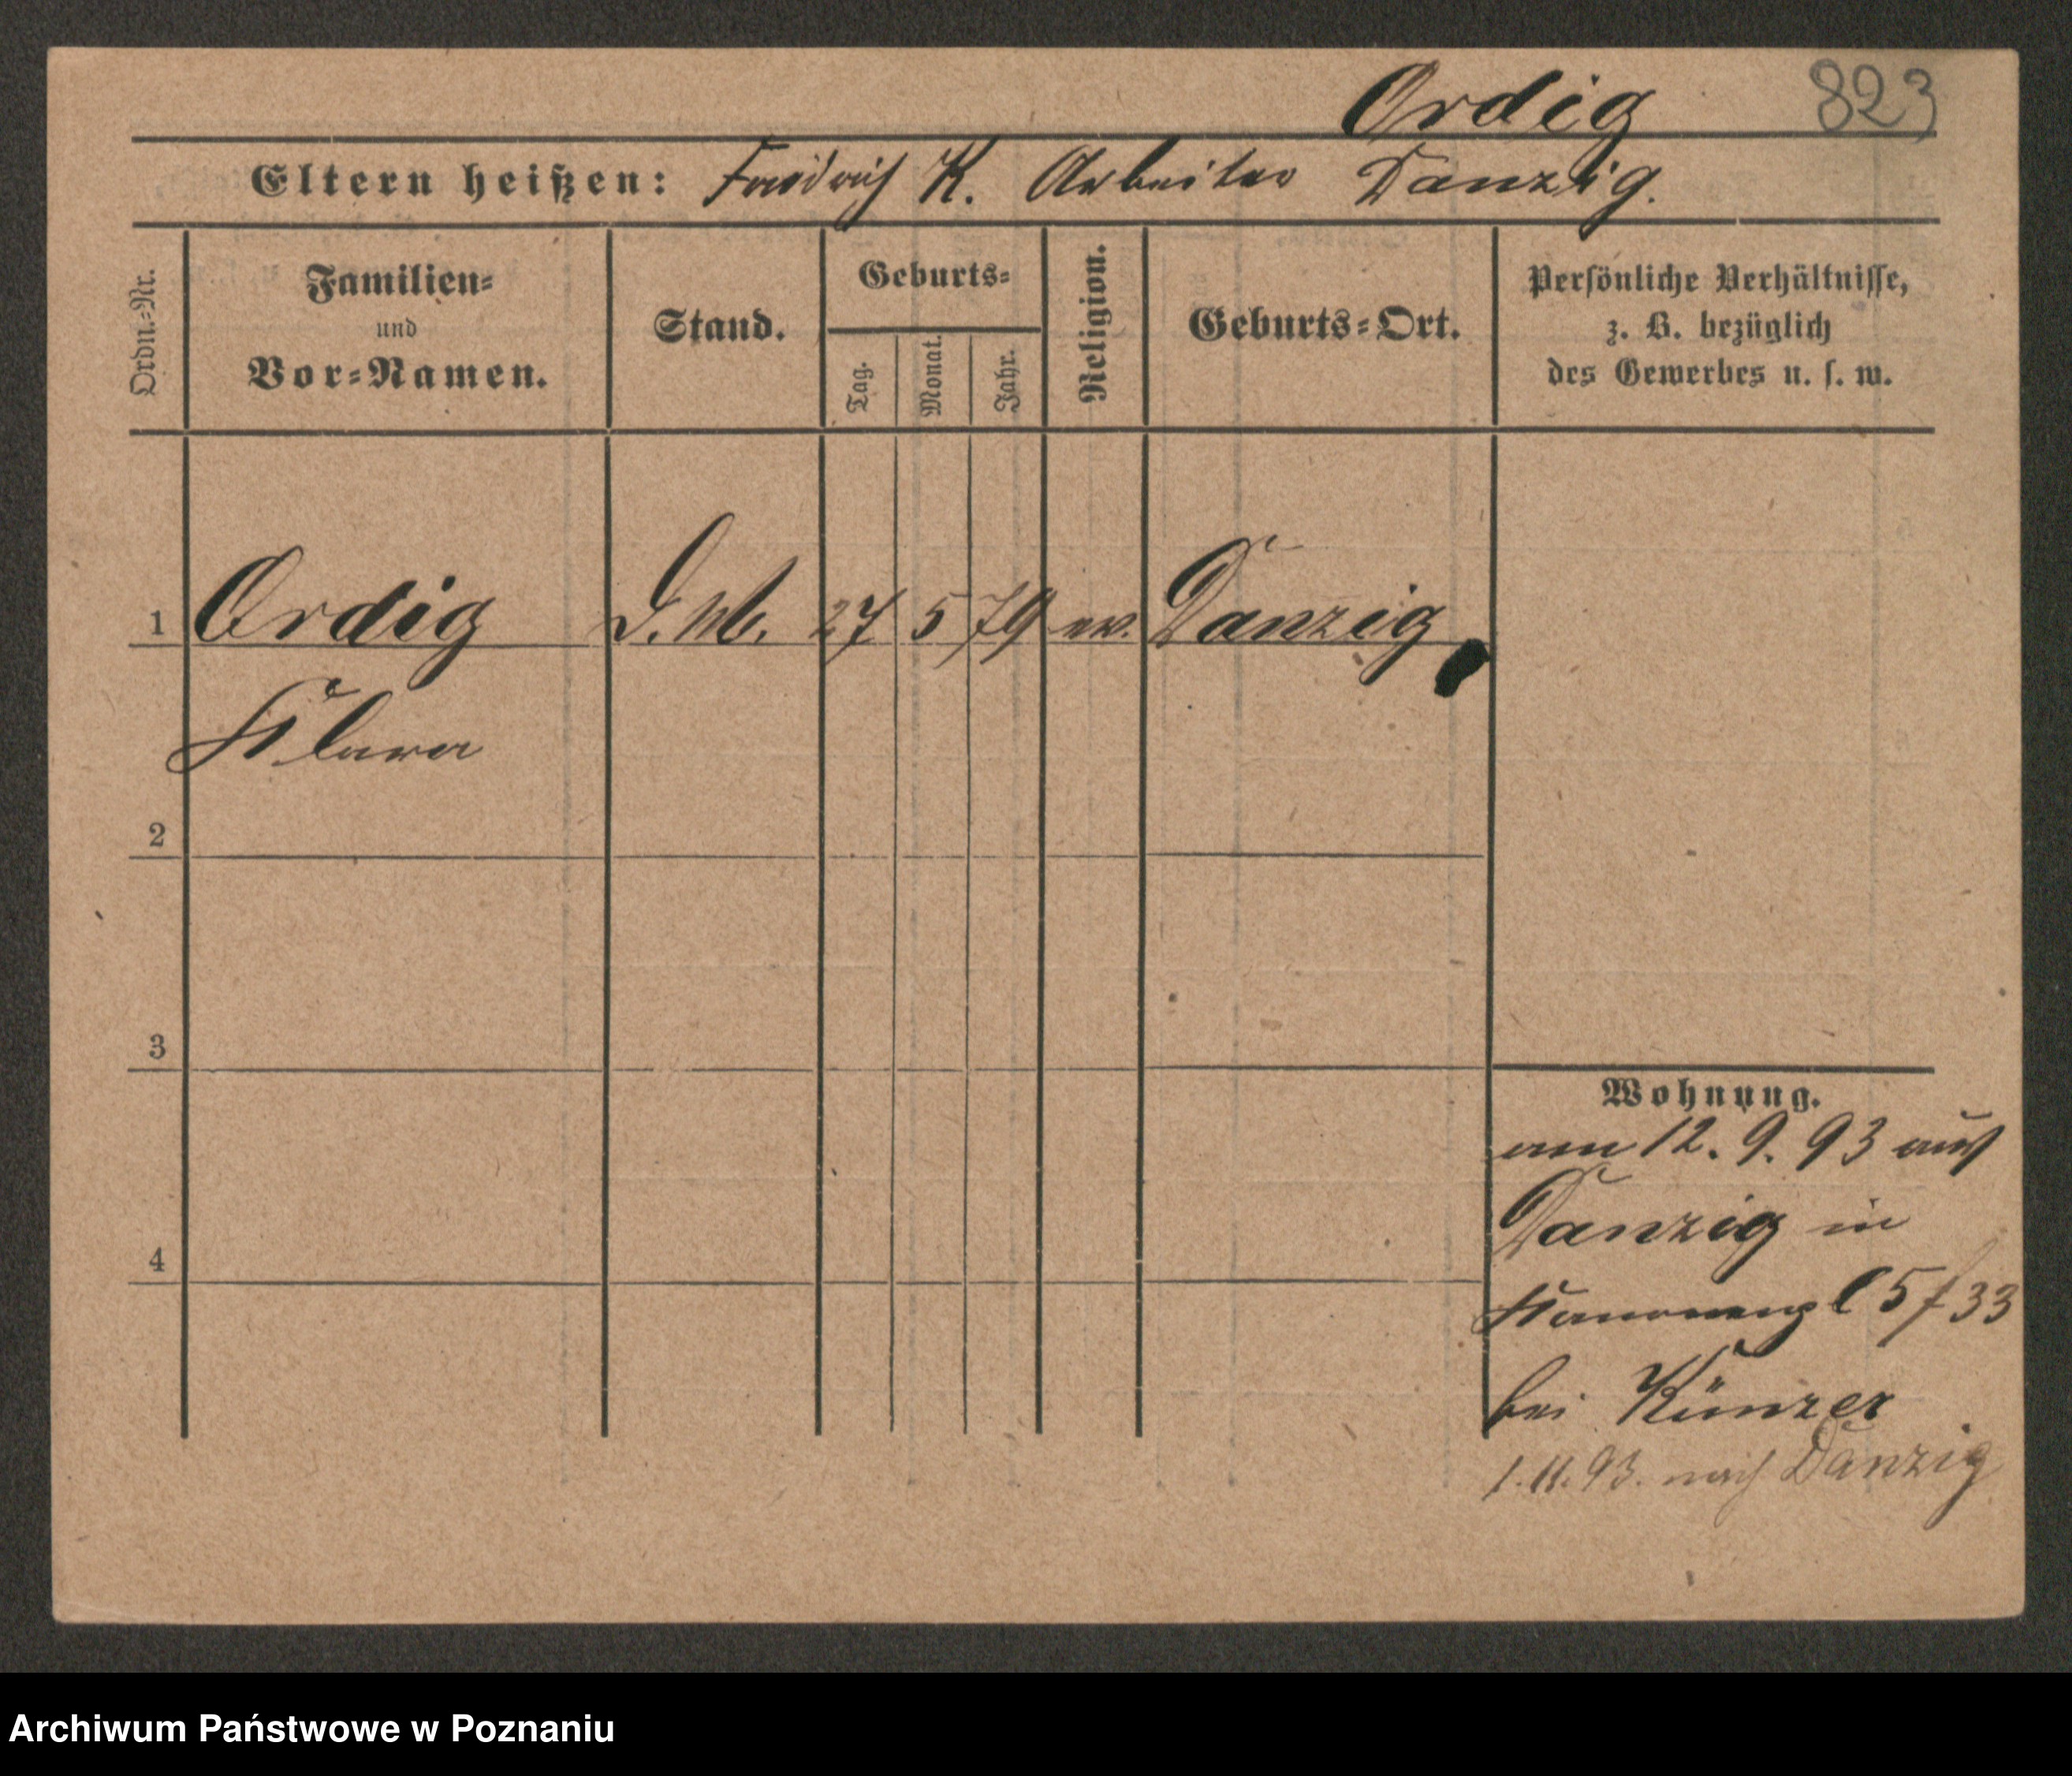 Ordig 823
Eltern heißen: Friedrich K. Arbeiter Danzig.
Ordn.-Nr.
Familien-
und
Vor-Namen.
Stand.
Geburts-
Tag.
Monat.
Jahr.
Religion.
Geburts-Ort.
Persönliche Verhältnisse,
z. B. bezüglich
des Gewerbes u. s. w.
1 Ordig D. M. 27 5 79 ev. Danzig
Klara
2
3
4
Wohnung.
am 12. 9. 93 aus
Danzig in
33
bei Künzer
1.11.93. nach Danzig
Archiwum Państwowe w Poznaniu